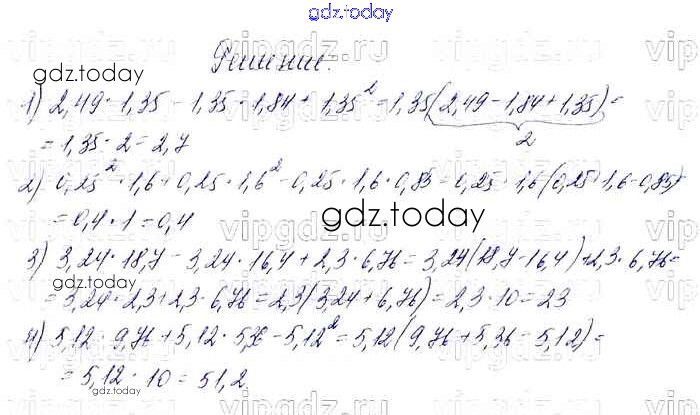 gdz.today
Решение.
gdz.today
1) 2,49 · 1,35 - 1,35 · 1,84 + 1,35² = 1,35(2,49 - 1,84 + 1,35) =
2
= 1,35 · 2 = 2,7
2) 0,25² · 1,6 + 0,25 · 1,6² - 0,25 · 1,6 · 0,85 = 0,25 · 1,6(0,25 + 1,6 - 0,85)
= 0,4 · 1 = 0,4
gdz.today
3) 3,24 · 18,7 - 3,24 · 16,4 + 2,3 · 6,76 = 3,24(18,7 - 16,4) + 2,3 · 6,76 =
gdz.today
= 3,24 · 2,3 + 2,3 · 6,76 = 2,3(3,24 + 6,76) = 2,3 · 10 = 23
4) 5,12 · 9,76 + 5,12 · - 5,12² = 5,12(9,76 + 5,36 - 5,12) =
= 5,12 · 10 = 51,2.
gdz.today
vipgdz.ru